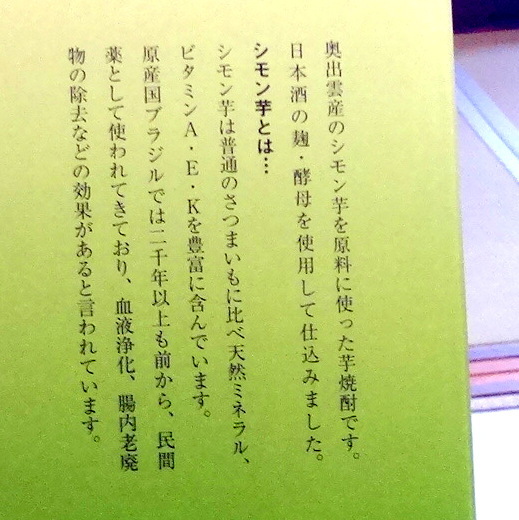 奥出雲産のシモン芋を原料に使った芋焼酎です。
日本酒の麹・酵母を使用して仕込みました。
シモン芋とは…
シモン芋は普通のさつまいもに比べ天然ミネラル、
ビタミンA・E・Kを豊富に含んでいます。
原産国ブラジルでは二千年以上も前から、民間
薬として使われてきており、血液浄化、腸内老廃
物の除去などの効果があると言われています。